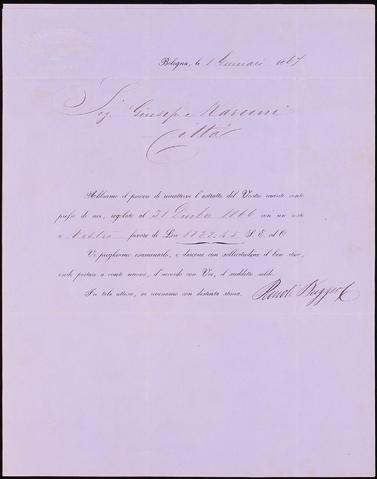 Bologna, li 1 Gennaio 1867
Sig. Giuseppe Marconi
Città
Abbiamo il piacere di rimettervi l'estratto del Vostro conto
presso di noi, regolato al 31 Dicbre 1866 con un
a Nostro favore di Lire 1822.44 S. E. ed O.
Vi preghiamo esaminarlo, e darcene con sollecitudine il ben
onde portare a conto nuovo, d'accordo con Voi, il suddetto saldo.
In tale attesa, vi riveriamo con distinta stima.